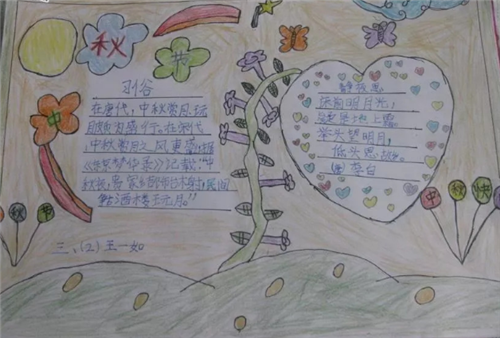 秋
节
习俗
在唐代,中秋赏月、玩
月颇为盛行。在宋代,
中秋赏月之风更盛,据
《东京梦华录》记载:"中
秋夜,贵家结饰台榭,民间
争占酒楼玩月。"
静夜思
床前明月光,
疑是地上霜。
举头望明月,
低头思故。
李白
秋 节
中 快
三、(2)王一如